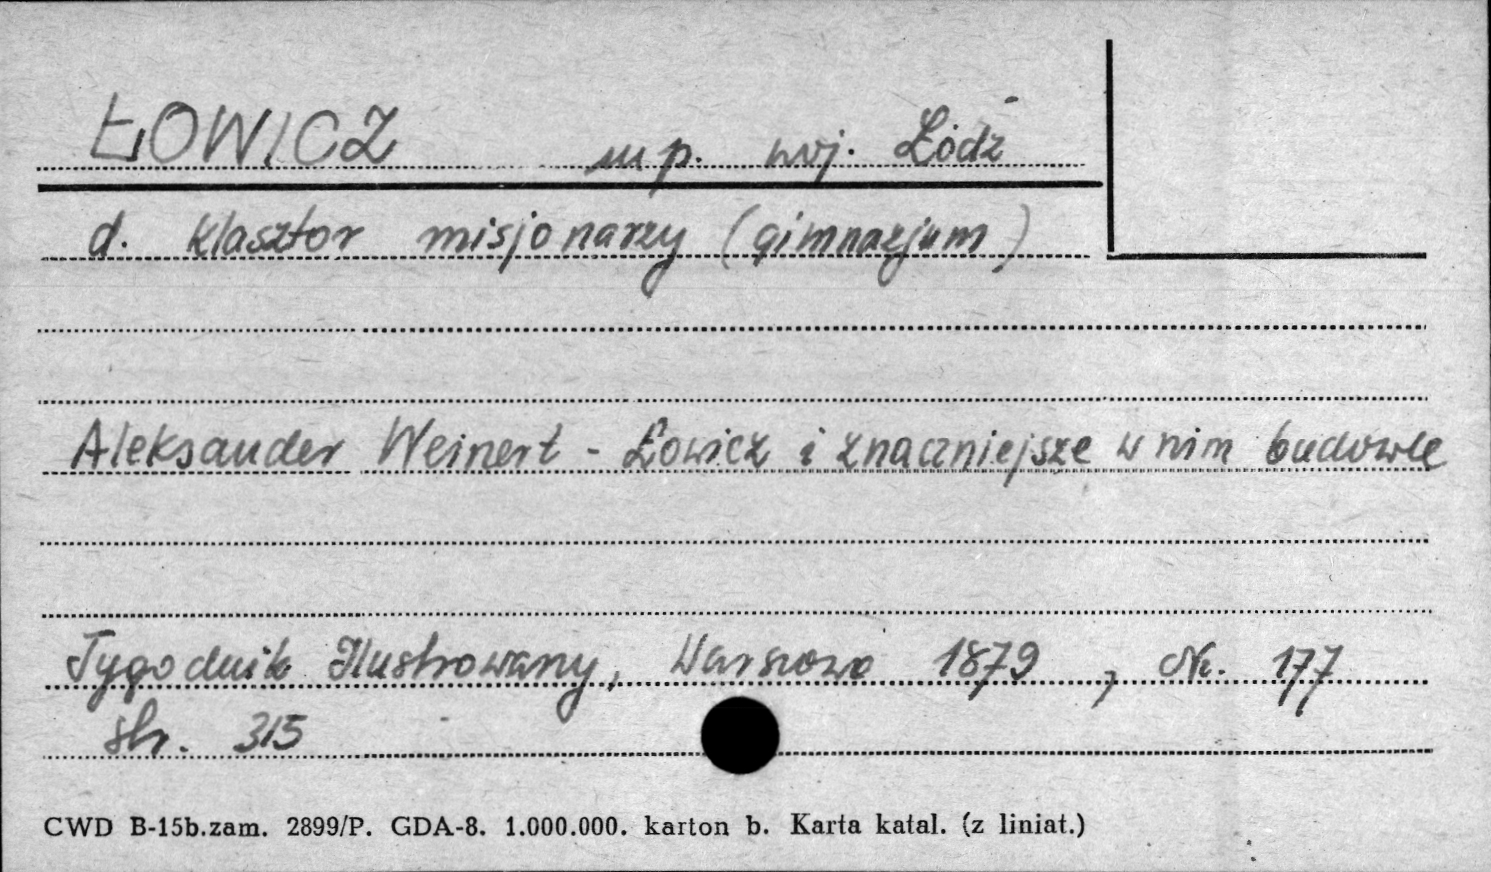 ŁOWICZ m p. woj. Łódź
d. klasztor misjonarzy (gimnazjum)
Aleksander Weinert - Łowicz i znaczniejsze w nim budowle
Tygodnik Ilustrowany, Warszawa 1879, Nr. 177
str. 315
CWD B-15b.zam. 2899/P. GDA-8. 1.000.000. karton b. Karta katal. (z liniat.)